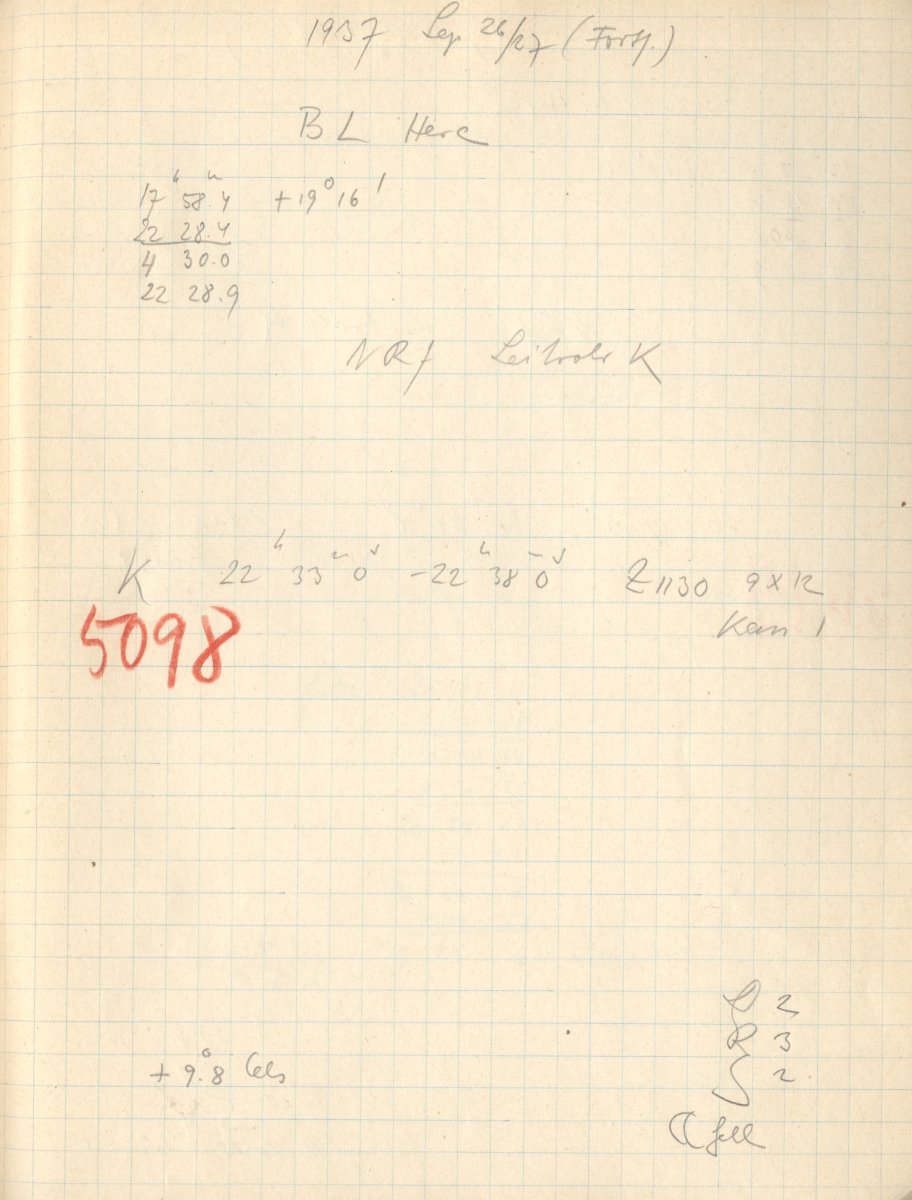 1937 Sep 26/27 (Forts.)
BL Herc
17ʰ 58ᵐ.4 +19° 16'
22 28.4
4 30.0
22 28.9
NRf Leitrohr K
K 22ʰ 33ᵐ 0ˢ -22ʰ 38ᵐ 0ˢ Z1130 9x12
Kan 1
5098
D 2
R 3
S 2
+9°.8 Cels
☾ hell